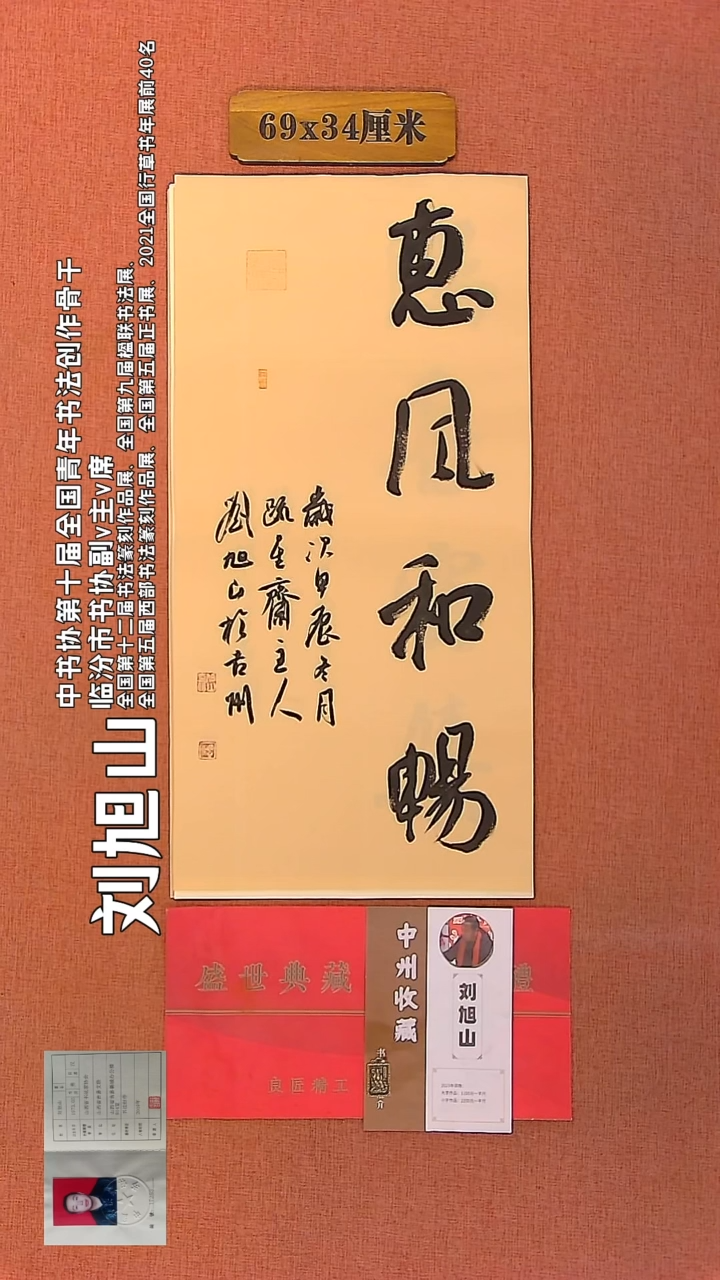 69x34厘米
惠风和暢
歲次甲辰冬月
齋主人
劉旭山於古州
刘旭山
中书协第十届全国青年书法创作骨干
临汾市书协副v主v席
全国第十二届书法篆刻作品展、全国第九届楹联书法展、
全国第五届西部书法篆刻作品展、全国第五届正书展、2021全国行草书年展前40名
盛世典藏
禮
良匠精工
中州收藏
书
简
介
刘旭山